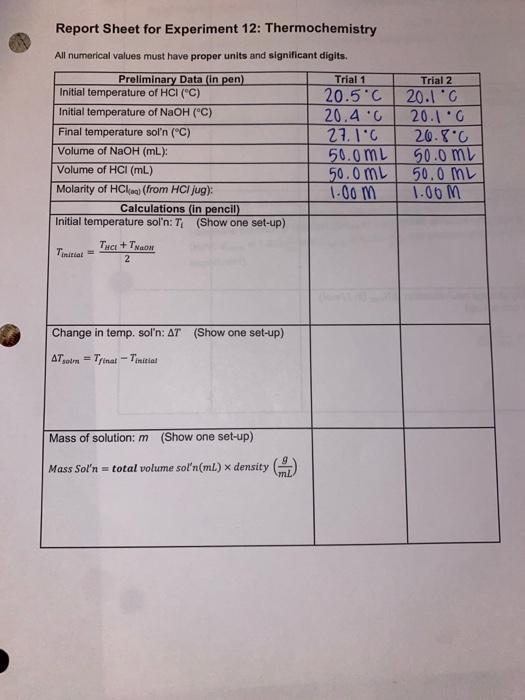 Report Sheet for Experiment 12: Thermochemistry
All numerical values must have proper units and significant digits.
Preliminary Data (in pen) Trial 1 Trial 2
Initial temperature of HCl (°C) 20.5°C 20.1°C
Initial temperature of NaOH (°C) 20.4°C 20.1°C
Final temperature sol'n (°C) 27.1°C 26.8°C
Volume of NaOH (mL): 50.0mL 50.0mL
Volume of HCl (mL) 50.0mL 50.0mL
Molarity of HCl(aq) (from HCl jug): 1.00M 1.00M
Calculations (in pencil)
Initial temperature sol'n: Ti (Show one set-up)
Tinitial = (THCl + TNaOH) / 2
Change in temp. sol'n: ΔT (Show one set-up)
ΔTsoln = Tfinal − Tinitial
Mass of solution: m (Show one set-up)
Mass Sol'n = total volume sol'n(mL) × density (g/mL)